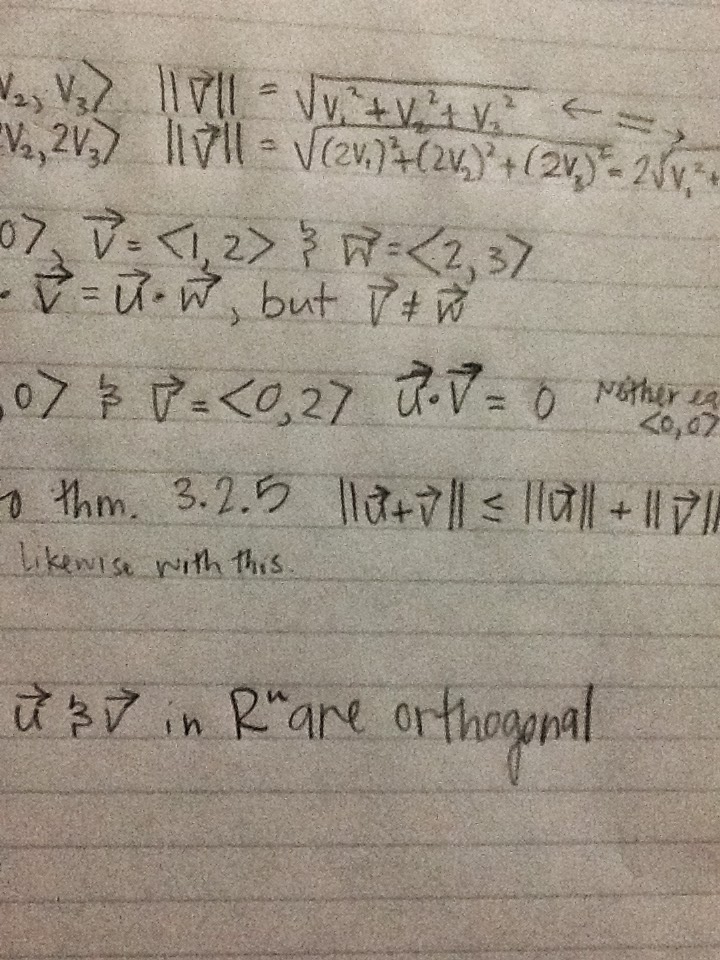 v₂, v₃⟩ ||v⃗|| = √v₁² + v₂² + v₃² ← = →
2v₂, 2v₃⟩ ||v⃗|| = √(2v₁)² + (2v₂)² + (2v₃)² = 2√v₁² +
0⟩, v⃗ = <1, 2> & w⃗ = <2, 3>
· v⃗ = u⃗ · w⃗, but v⃗ ≠ w⃗
, 0⟩ & v⃗ = <0, 2> u⃗ · v⃗ = 0 Neither
<0, 0>
thm. 3.2.5 ||u⃗ + v⃗|| ≤ ||u⃗|| + ||v⃗||
likewise with this.
u⃗ & v⃗ in Rⁿ are orthogonal